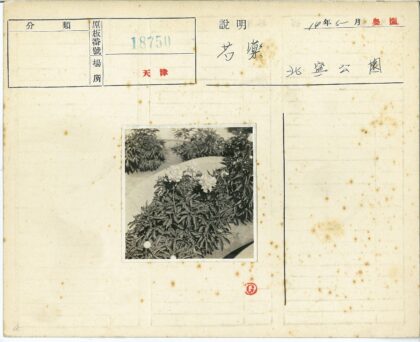 分類
原板番號 18750
場所 天津
說明 19年5月奧瀛
芍藥
北寧公園